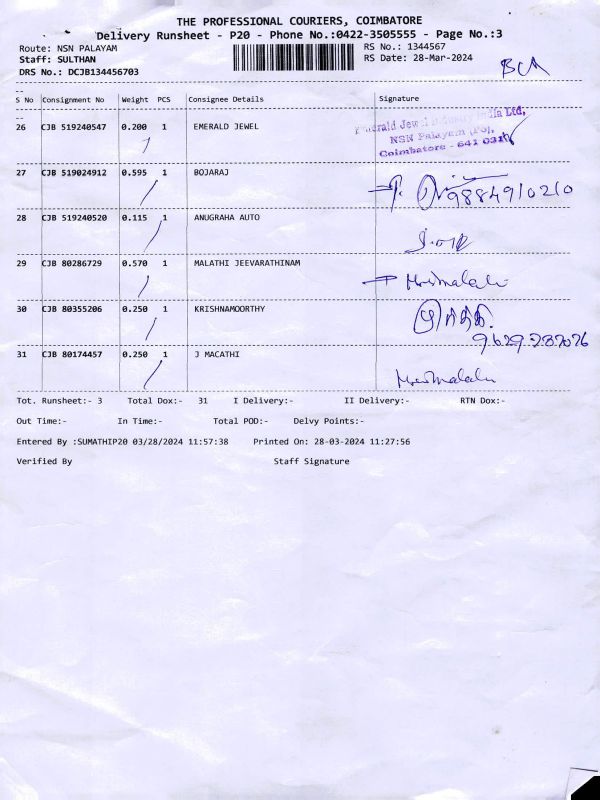 THE PROFESSIONAL COURIERS, COIMBATORE
Delivery Runsheet - P20 - Phone No.:0422-3505555 - Page No.:3
Route: NSN PALAYAM RS No.: 1344567
Staff: SULTHAN RS Date: 28-Mar-2024
DRS No.: DCJB134456703
S No Consignment No Weight PCS Consignee Details Signature
26 CJB 519240547 0.200 1 EMERALD JEWEL
Emerald Jewel Industry India Ltd,
NSN Palayam (PO),
Coimbatore - 641 031
27 CJB 519024912 0.595 1 BOJARAJ 9884910210
28 CJB 519240520 0.115 1 ANUGRAHA AUTO
29 CJB 80286729 0.570 1 MALATHI JEEVARATHINAM
30 CJB 80355206 0.250 1 KRISHNAMOORTHY
31 CJB 80174457 0.250 1 J MACATHI
Tot. Runsheet:- 3 Total Dox:- 31 I Delivery:- II Delivery:- RTN Dox:-
Out Time:- In Time:- Total POD:- Delvy Points:-
Entered By :SUMATHIP20 03/28/2024 11:57:38 Printed On: 28-03-2024 11:27:56
Verified By Staff Signature